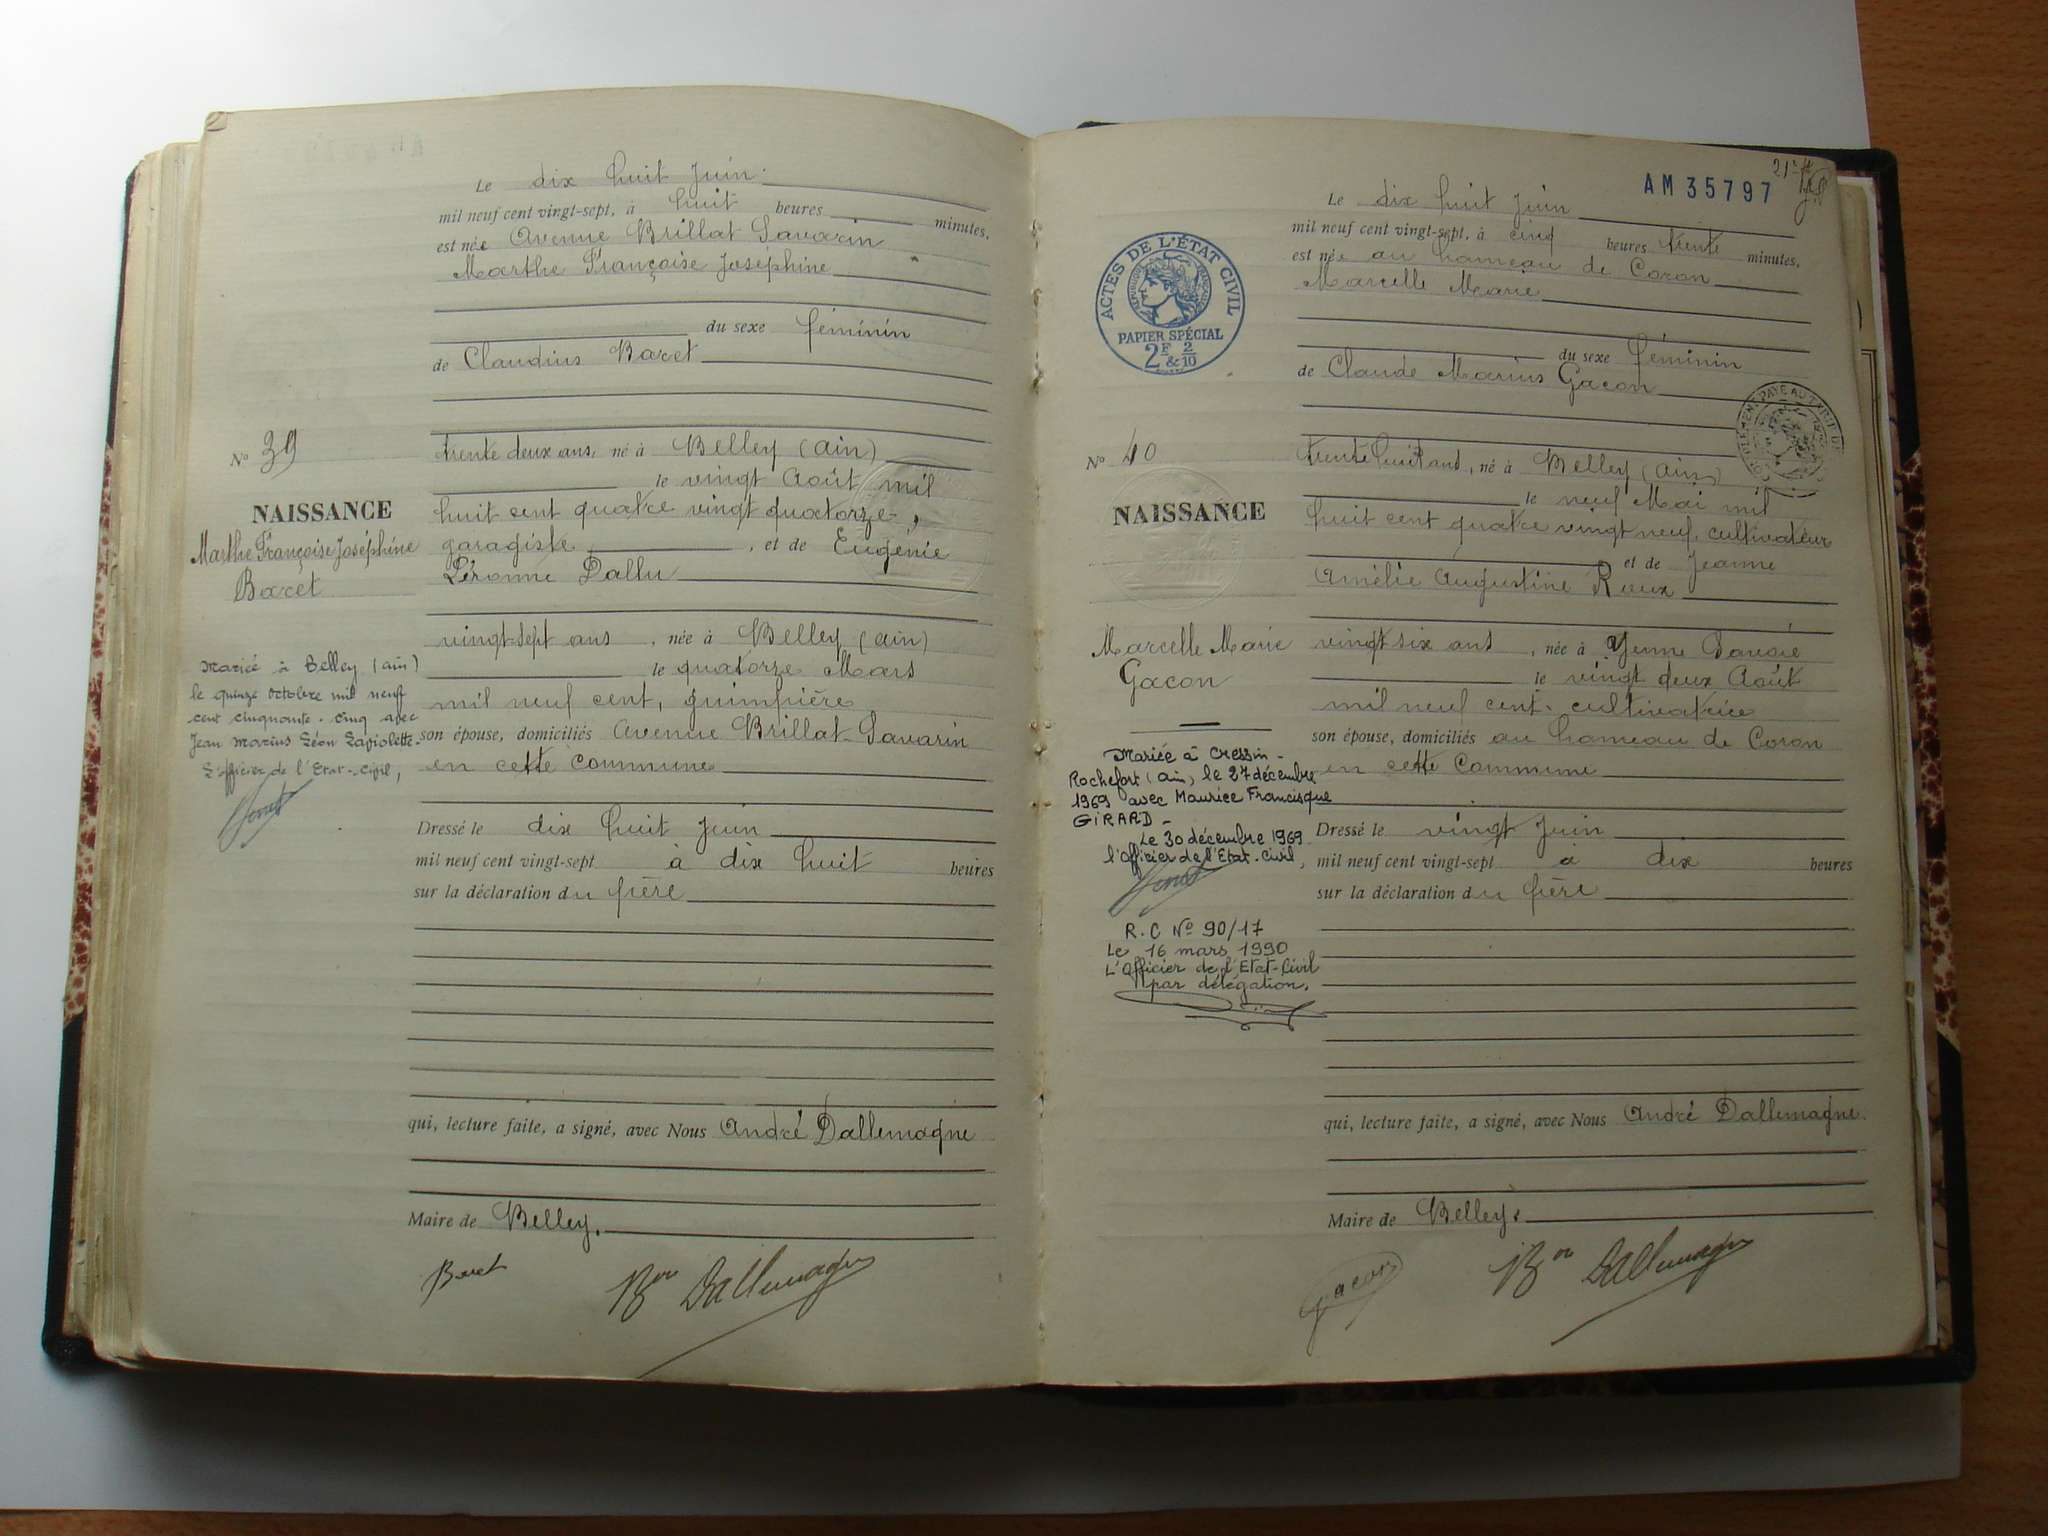 Le dix huit Juin
mil neuf cent vingt-sept, à huit heures minutes,
est née Avenue Brillat Savarin
Marthe Françoise Joséphine
du sexe féminin
de Claudius Baret
N° 39
trente deux ans, né à Belley (ain)
le vingt Août mil
NAISSANCE
huit cent quatre vingt quatorze,
Marthe Françoise Joséphine
Baret
garagiste, et de Eugénie
Pallu
vingt-sept ans, née à Belley (ain)
le quatorze Mars
mil neuf cent,
son épouse, domiciliés Avenue Brillat-Savarin
en cette commune
Mariée à Belley (ain)
le quinze octobre mil neuf
cent cinquante-cinq avec
Jean Marius Léon
L'officier de l'Etat-Civil,
Dressé le dix huit Juin
mil neuf cent vingt-sept à dix huit heures
sur la déclaration du père
qui, lecture faite, a signé, avec Nous André Dallemagne
Maire de Belley.
Baret
Bon Dallemagne
AM 35797
Le dix huit Juin
mil neuf cent vingt-sept, à cinq heures trente minutes,
est née au hameau de Coron
Marcelle Marie
ACTES DE L'ÉTAT CIVIL
RÉPUBLIQUE FRANÇAISE
PAPIER SPÉCIAL
2F & 2/10
du sexe féminin
de Claude Marius Gacon
N° 40
trente huit ans, né à Belley (ain)
le neuf Mai mil
NAISSANCE
huit cent quatre vingt neuf, cultivateur
et de Jeanne
Amélie Augustine Roux
Marcelle Marie
Gacon
vingt six ans, née à Yenne Savoie
le vingt deux Août
mil neuf cent, cultivatrice
son épouse, domiciliés au hameau de Coron
en cette Commune
Mariée à Cressin-
Rochefort (ain), le 27 décembre
1969 avec Maurice Francisque
GIRARD-
Le 30 décembre 1969
l'Officier de l'Etat-Civil,
R.C N° 90/17
Le 16 mars 1990
L'Officier de l'Etat-Civil
par délégation,
Dressé le vingt Juin
mil neuf cent vingt-sept à dix heures
sur la déclaration du père
qui, lecture faite, a signé, avec Nous André Dallemagne
Maire de Belley.
Gacon
Bon Dallemagne